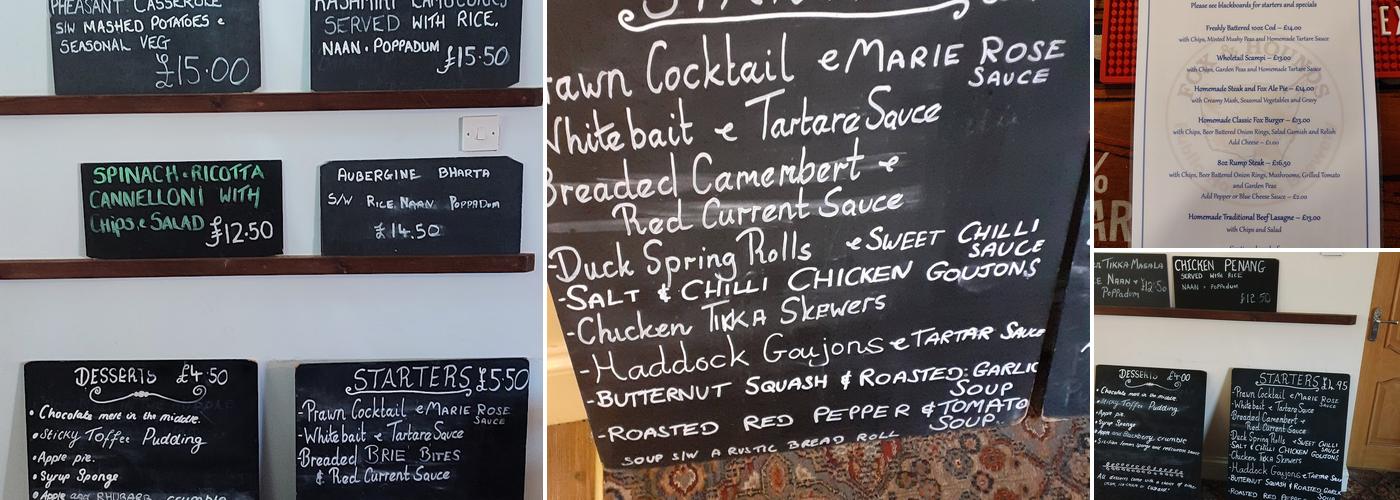 PHEASANT CASSEROLE
S/W MASHED POTATOES &
SEASONAL VEG
£15.00
SERVED WITH RICE,
NAAN · POPPADUM
£15.50
SPINACH · RICOTTA
CANNELLONI WITH
CHIPS & SALAD
£12.50
AUBERGINE BHARTA
S/W RICE, NAAN POPPADUM
£14.50
DESSERTS £4.50
• Chocolate melt in the middle.
• Sticky Toffee Pudding
• Apple pie.
• Syrup Sponge
• Apple and RHUBARB crumble
STARTERS £5.50
-Prawn Cocktail & MARIE ROSE
SAUCE
-Whitebait & Tartare Sauce
-Breaded BRIE BITES
& Red Currant Sauce
rawn Cocktail & MARIE ROSE
SAUCE
Whitebait & Tartare Sauce
Breaded Camembert &
Red Current Sauce
-Duck Spring Rolls & SWEET CHILLI
SAUCE
-SALT & CHILLI CHICKEN GOUJONS
-Chicken TIKKA Skewers
-Haddock Goujons & TARTAR SAUCE
-BUTTERNUT SQUASH & ROASTED GARLIC
SOUP
-ROASTED RED PEPPER & TOMATO
SOUP.
SOUP S/W A RUSTIC BREAD ROLL
Please see blackboards for starters and specials
Freshly Battered 10oz Cod – £14.00
with Chips, Minted Mushy Peas and Homemade Tartare Sauce
Wholetail Scampi – £13.00
with Chips, Garden Peas and Homemade Tartare Sauce
Homemade Steak and Fox Ale Pie – £14.00
with Creamy Mash, Seasonal Vegetables and Gravy
Homemade Classic Fox Burger – £13.00
with Chips, Beer Battered Onion Rings, Salad Garnish and Relish
Add Cheese – £1.00
8oz Rump Steak – £16.50
with Chips, Beer Battered Onion Rings, Mushrooms, Grilled Tomato
and Garden Peas
Add Pepper or Blue Cheese Sauce – £2.00
Homemade Traditional Beef Lasagne – £13.00
with Chips and Salad
TIKKA MASALA
NAAN & £12.50
POPPADUM
CHICKEN PENANG
SERVED WITH RICE
NAAN · POPPADUM
£12.50
DESSERTS £4.00
• Chocolate melt in the middle.
• Sticky Toffee Pudding
• Apple pie.
• Syrup Sponge
• Apple and Blackberry crumble
• Sicilian lemon sponge and
STARTERS £4.95
-Prawn Cocktail & MARIE ROSE
SAUCE
-Whitebait & Tartare Sauce
Breaded Camembert &
Red Current Sauce
Duck Spring Rolls & SWEET CHILLI
SAUCE
SALT & CHILLI CHICKEN GOUJONS
Chicken TIKKA Skewers
-Haddock Goujons & TARTAR SAUCE
-BUTTERNUT SQUASH & ROASTED GARLIC
SOUP
-ROASTED RED PEPPER & TOMATO